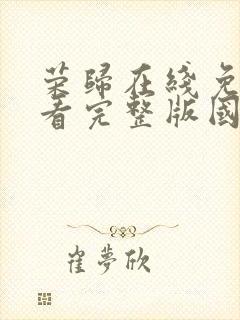 荣歸在綫免
看完整版國
崔夢欣